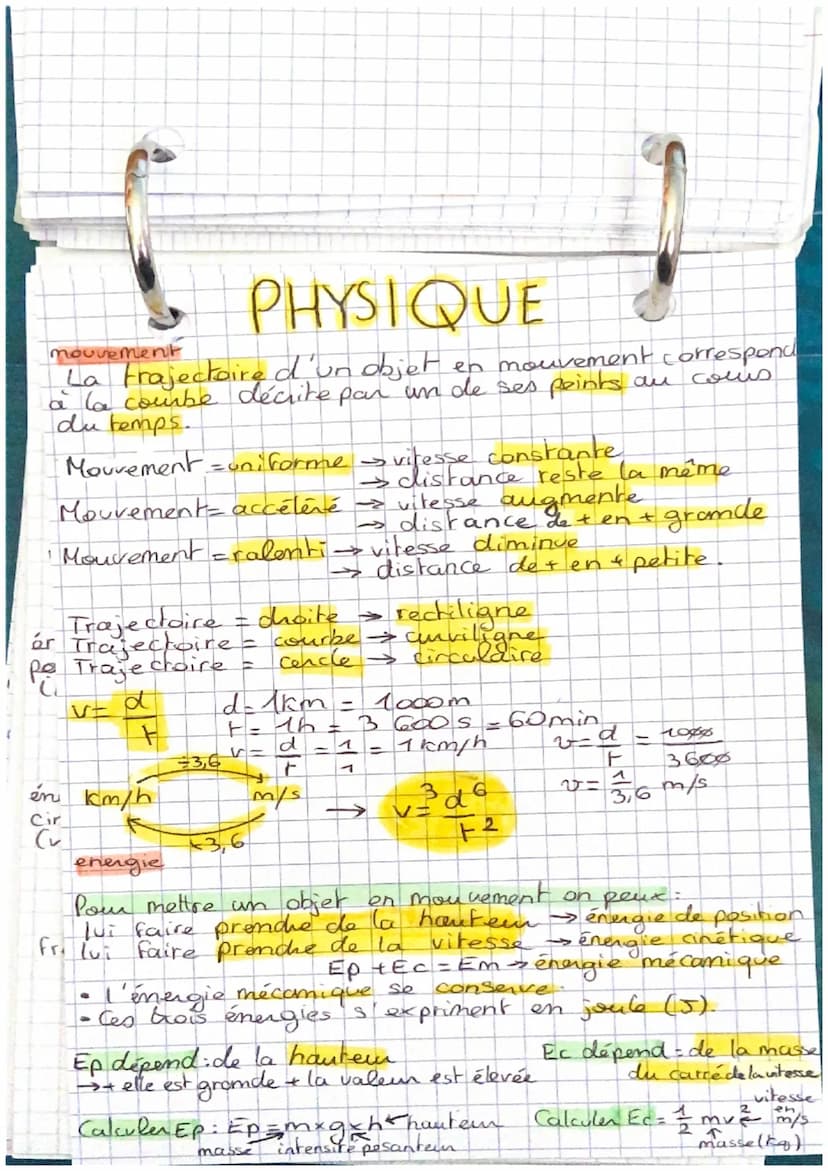 PHYSIQUE
mouvement
La trajectoire d'un objet en mouvement correspond
à la courbe décrite par un de ses points au cours
du temps.
Mouvement = uniforme → vitesse constante
→ distance reste la même
Mouvement = accéléré → vitesse augmente
→ distance de + en + grande
Mouvement = ralenti → vitesse diminue
→ distance de + en + petite.
Trajectoire = droite → rectiligne
ér Trajectoire = courbe → curviligne
pe Trajectoire = cercle → circulaire
v = d/t
d = 1km = 1000m
t = 1h = 3 600s = 60min
v = d/t = 1/1 = 1 km/h
v = d/t = 1000/3600
v = 1/3,6 m/s
÷3,6
km/h m/s → v = ³d⁶/t²
×3,6
én
cir
Cu
energie
Pour mettre un objet en mouvement on peux :
lui faire prendre de la hauteur → énergie de position
fr. lui faire prendre de la vitesse → énergie cinétique
Ep + Ec = Em → énergie mécanique
• l'énergie mécanique se conserve.
- Ces trois énergies s'expriment en joule (J).
Ep dépend : de la hauteur
→ + elle est grande + la valeur est élevée
Ec dépend = de la masse
du carré de la vitesse
Calculer Ep : Ep = m×g×h ← hauteur
masse intensité pesanteur
Calculer Ec = 1/2 mv² ← vitesse en m/s
masse (kg)